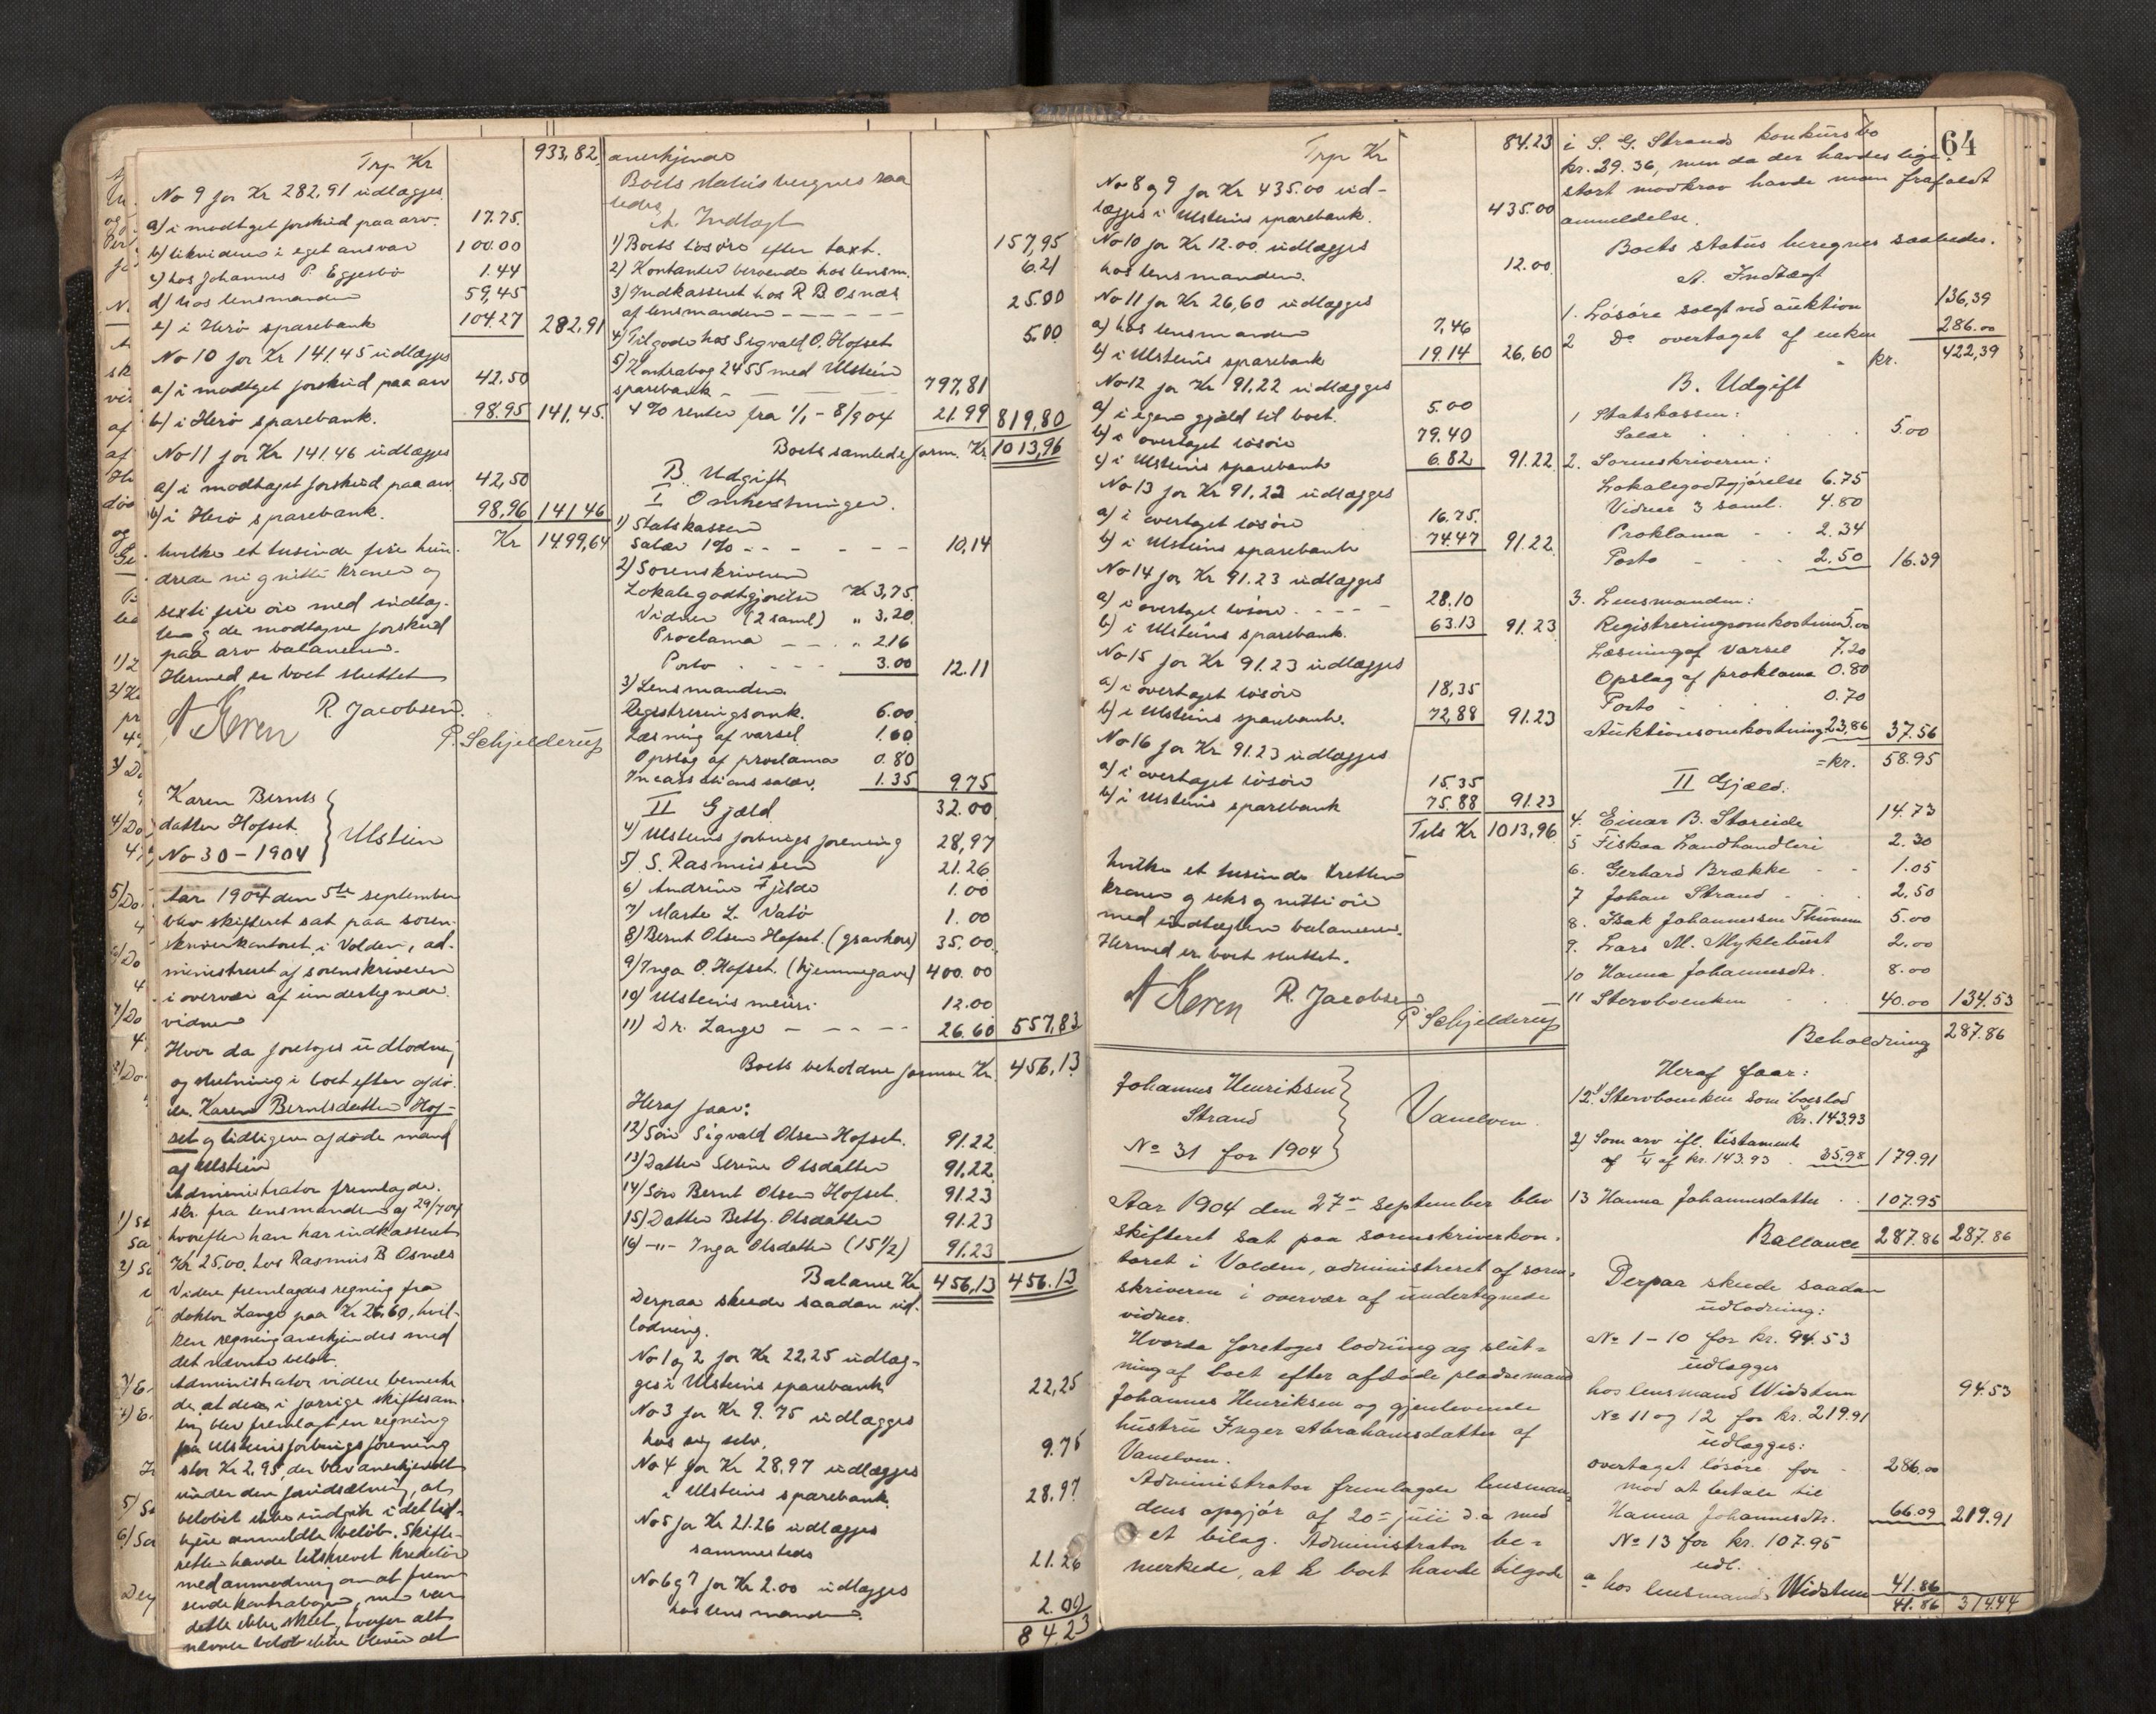 Trp Kr 933,82
No 9 for Kr 282,91 udlægges
a) i modtaget forskud paa arv. 17.75.
b) likvideres i eget ansvar 100.00
c) hos Johannes P. Eggesbø 1.44
d) hos lensmanden 59,45
e) i Herø sparebank 104.27 282,91
No 10 for Kr 141,45 udlægges
a) i modtaget forskud paa arv 42.50
b) i Herø sparebank. 98.95 141,45.
No 11 for Kr 141.46 udlægges
a) i modtaget forskud paa arv. 42,50
b) i Herø sparebank. 98,96 141 46
Kr 1499,64
hvilke et tusinde fire hun-
drede ni og nitti kroner og
sexti fire øre med indtæg-
ten og de modtagne forskud
paa arv balancerer.
Hermed er boet sluttet
R. Jacobsen.
P. Schjelderup
Karen Bernts
datter Hofset.
No 30 - 1904
Ulstein
Aar 1904 den 5te september
blev skifteret sat paa soren-
skriverkontoret i Volden, ad-
ministreret af sorenskriveren
i overvær af undertegnede
vidner
Hvor da foretoges udlodning
og slutning i boet efter afdø-
de. Karen Berntsdatter Hof-
set og tidligere afdøde mand
af Ulstein
Administrator fremlagde.
skr. fra lensmanden af 29/7 04
hvorefter han har indkasseret
Kr 25.00, hos Rasmus B Osnes
Videre fremlagdes regning fra
doktor Lange paa Kr 26,60, hvil-
ken regning anerkjendes med
det nævnte beløb.
Administrator videre bemerke
de, at der i forrige skiftesam
ling blev fremlagt en regning
fra Ulsteins forbrugsforening
stor Kr 2.95, der blev anerkjendt
under den forudsætning, at
beløbet ikke indgik i det tid-
ligere anmeldte beløb. Skifte-
retten havde tilskrevet kreditor
med anmodning om at frem
sende kontrabogen, men var
dette ikke skeet, hvorfor alt
nævnte beløb ikke blev at
anerkjende
Boets status beregnes saa
ledes
A. Indtægt
1) Boets løsøre efter taxt. 157,95
2) Kontanter beroende hos lensm. 6.21
3) Indkasseret hos R B. Osnes
af lensmanden 25.00
4) Tilgode hos Sigvald O. Hofset 5.00
5) Kontrabog 2455 med Ulstein
sparebank 797,81
4% renter fra 1/1 - 8/9 04 21.99 819,80
Boets samlede form. Kr. 1013,96
B. Udgift
I Omkostninger.
1) Statskassen
Salær 1% 10,14
2) Sorenskriveren
Lokalegodtgjørelse Kr 3,75
Vidner (2 saml) " 3,20
Proclama " 2.16
Porto 3.00 12.11
3) Lensmanden
Registreringsomk. 6.00
Læsning af varsel 1.60
Opslag af proclama 0.80
Incassationssalær. 1.35 9.75
II Gjæld 32.00
4) Ulsteins forbrugsforening 28,97
5) S. Rasmussen 21.26
6) Andrine Fjelde 1.00
7) Marte L. Vatø 1.00
8) Bernt Olsen Hofset. (gravkors) 35.00
9) Inga O. Hofset. (hjemmegave) 400.00
10) Ulsteins meieri 12.00
11) Dr. Lange 26.60 557,83
Boets beholdne formue Kr. 456,13
Heraf faar:
12) Søn Sigvald Olsen Hofset. 91.22
13) Datter Serine Olsdatter 91,22
14) Søn Bernt Olsen Hofset. 91.23
15) Datter Betty Olsdatter 91.23
16) -"- Inga Olsdatter (15 1/2) 91.23
Balance Kr 456,13 456.13
Derpaa skeede saadan ud-
lodning.
No 1 og 2 for Kr 22,25 udlæg-
ges i Ulsteins sparebank 22,25
No 3 for Kr 9.75 udlægges
hos sig selv. 9.75
No 4 for Kr 28.97 udlægges
i Ulsteins sparebank. 28.97
No 5 for Kr 21.26 udlægges
sammesteds 21.26
No 6 og 7 for Kr 2.00 udlægges
hos lensmanden. 2.00
84 23
64
Trp Kr 84.23
No 8 og 9 for Kr 435.00 ud-
lægges i Ulsteins sparebank. 435.00
No 10 for Kr 12.00 udlægges
hos lensmanden. 12.00
No 11 for Kr 26,60 udlægges
a) hos lensmanden 7,46
b) i Ulsteins sparebank 19.14 26,60
No 12 for Kr 91,22 udlægges
a) i egen gjæld til boet. 5.00
b) i overtaget løsøre 79.40
c) i Ulsteins sparebank 6.82 91.22
No 13 for Kr 91,22 udlægges
a) i overtaget løsøre 16.75.
b) i Ulsteins sparebank 74.47 91.22
No 14 for Kr 91.23 udlægges
a) i overtaget løsøre 28.10
b) i Ulsteins sparebank. 63.13 91.23
No 15 for Kr 91.23 udlægges
a) i overtaget løsøre 18,35
b) i Ulsteins sparebank. 72,88 91.23
No 16 for Kr 91.23 udlægges
a) i overtaget løsøre 15.35
b) i Ulsteins sparebank 75.88 91.23
Tils Kr 1013,96
hvilke et tusinde tretten
kroner og seks og nitti øre
med indtægten balancerer.
Hermed er boet sluttet.
R. Jacobsen
P Schjelderup
Johannes Henriksen
Strand
No 31 for 1904
Vanelven
Aar 1904 den 27de September blev
skifteret sat paa sorenskriverkon-
toret i Volden, administreret af soren-
skriveren i overvær af undertegnede
vidner.
Hvorda foretoges lodning og slut-
ning af boet efter afdøde pladsemand
Johannes Henriksen og gjenlevende
hustru Inger Abrahamsdatter af
Vanelven.
Administrator fremlagde lensman-
dens opgjør af 20de juli d.a. med
et bilag. Administrator be-
merkede, at boet havde tilgode
i S. G. Strands konkursbo
kr. 29.36, men da der havdes lige
stort modkrav havde man frafaldt
anmeldelse.
Boets status beregnes saaledes.
A. Indtægt
1. Løsøre solgt ved auktion 136,39
2 Do overtaget af enken 286.00
kr. 422,39
B. Udgift
1 Statskassen:
Salær 5.00
2. Sorenskriveren:
Lokalegodtgjørelse 6.75
Vidner 3 saml. 4.80
Proklama 2.34
Porto 2,50 16.39
3. Lensmanden:
Registreringsomkostninger 5.00
Læsning af varsel 7.20
Opslag af proklama 0.80
Porto 0.70
Auktionsomkostninger 23,86 37.56
= kr. 58.95
II Gjæld.
4. Einar B. Storeide 14.73
5 Fiskaa Landhandleri 2.30
6. Gerhard Brække 1.05
7 Johan Strand 2,50
8. Isak Johannessen Thunem 5.00
9. Lars M. Myklebust 2.00
10 Hanna Johannesdtr. 8.00
11 Stervboenken 40.00 134.53
Beholdning 287.86
Heraf faar:
12.1) Stervboenken som boeslod
Kr. 143.93
2) Som arv ifl. testamente
af 1/4 af kr. 143.93 35.98 179.91
13 Hanna Johannesdatter 107.95
Ballance 287.86 287.86
Derpaa skeede saadan
udlodning:
No 1-10 for kr. 94.53
udlægges
hos lensmand Widsteen 94.53
No 11 og 12 for kr. 219.91
udlægges:
overtaget løsøre for 286.00
mod at betale til
Hanna Johannesdtr. 66.09 219.91
No 13 for kr. 107.95
udl.
a hos lensmand Widsteen 41.86
41.86 314.44